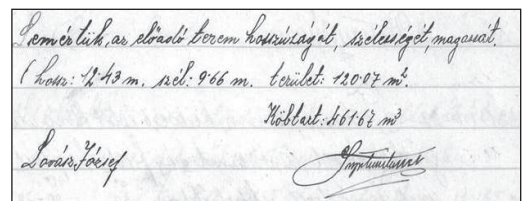 Lemértük, az előadó terem hosszúságát, szélességét, magassát.
(hossz: 12·43 m. szél: 9·66 m. terület: 120·07 m².
Köbtart: 461·67 m³
Lovász József